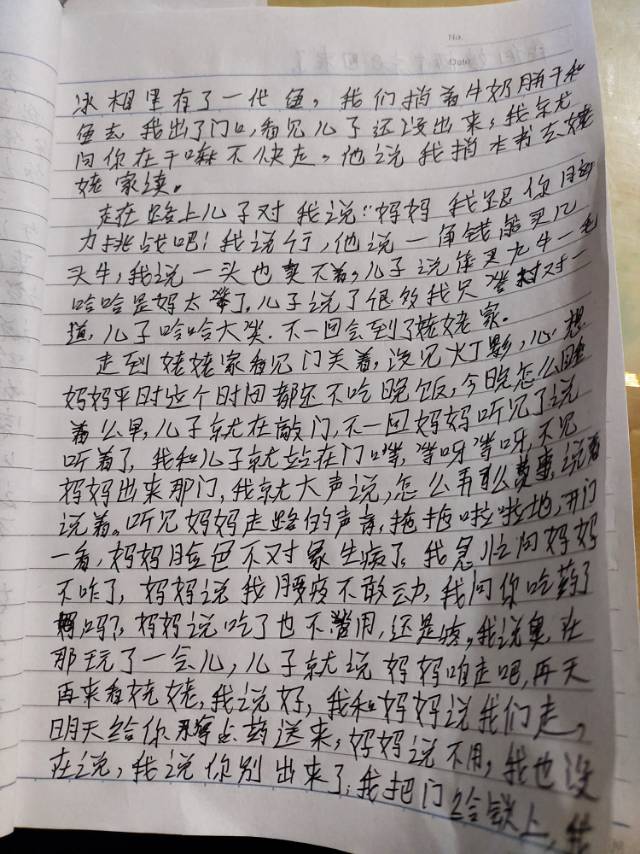 No.
Date
冰相里有了一代鱼，我们捎着牛奶饼干和
鱼去 我出了门口，看见儿子还没出来，我就
问你在干嘛不快走。他说我捎本书去姥
姥家读。
走在路上儿子对我说："妈妈 我跟你
力挑战吧！我说行，他说一角钱能买几
头牛，我说一头也买不着，儿子说能买九牛一毛
哈哈是妈太笨了，儿子说了很多我只 对一
道，儿子哈哈大笑．不一回会到了姥姥家．
走到姥姥家看见门关着，没见灯影，心想
妈妈平时这个时间都还不吃晚饭，今晚怎么睡
着么早，儿子就在敲门，不一回妈妈听见了说
听着了，我和儿子就站在门口等，等呀等呀，不见
妈妈出来那门，我就大声说，怎么再 说着
说着。听见妈妈走路的声音，拖拖啦啦地，开门
一看，妈妈脸色不对象生病了，我急忙问妈妈
不咋了，妈妈说我腰疼不敢动，我问你吃药了
吗？妈妈说吃了也不管用，还是疼，我说 在
那玩了一会儿，儿子就说妈妈咱走吧，再天
再来看姥姥，我说好，我和妈妈说我们走，
明天给你 点药送来，妈妈说不用，我也没
在说，我说你别出来了，我把门给锁上，我